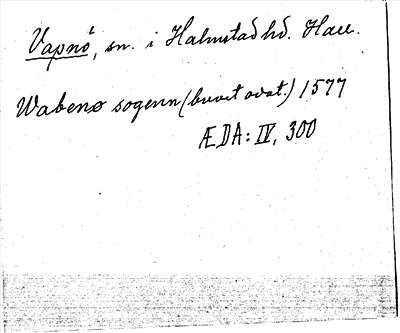 Vapnö, sn. i Halmstad hd. Hall.
Wabenø sogenn (buvet ovat.) 1577
ÆDA: IV, 300